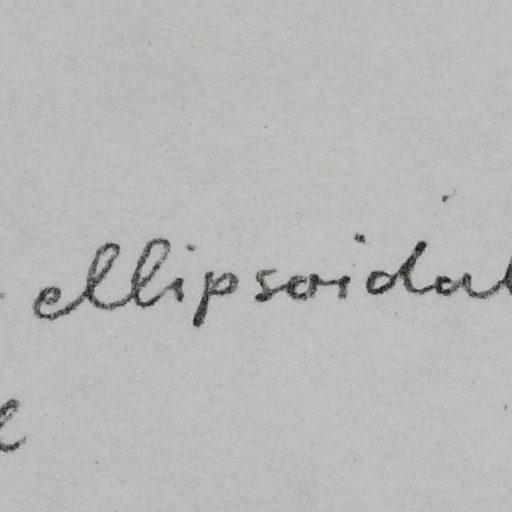 ellipsoidal
e